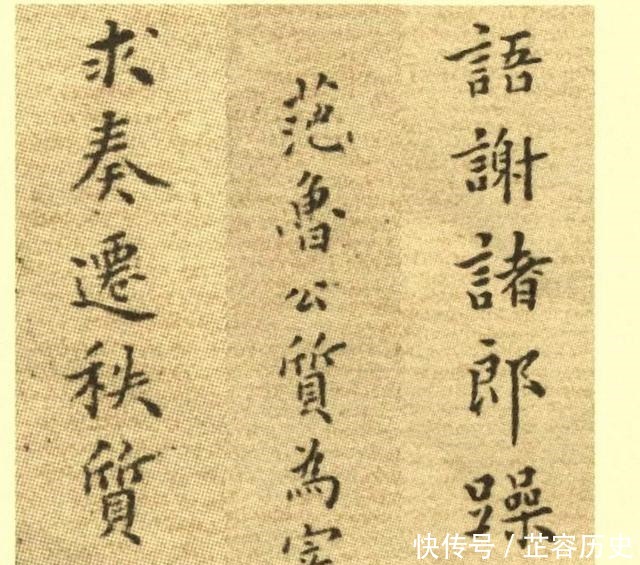 語謝諸郎躁
范魯公質為宰
求奏遷秩質
快传号/芷容历史